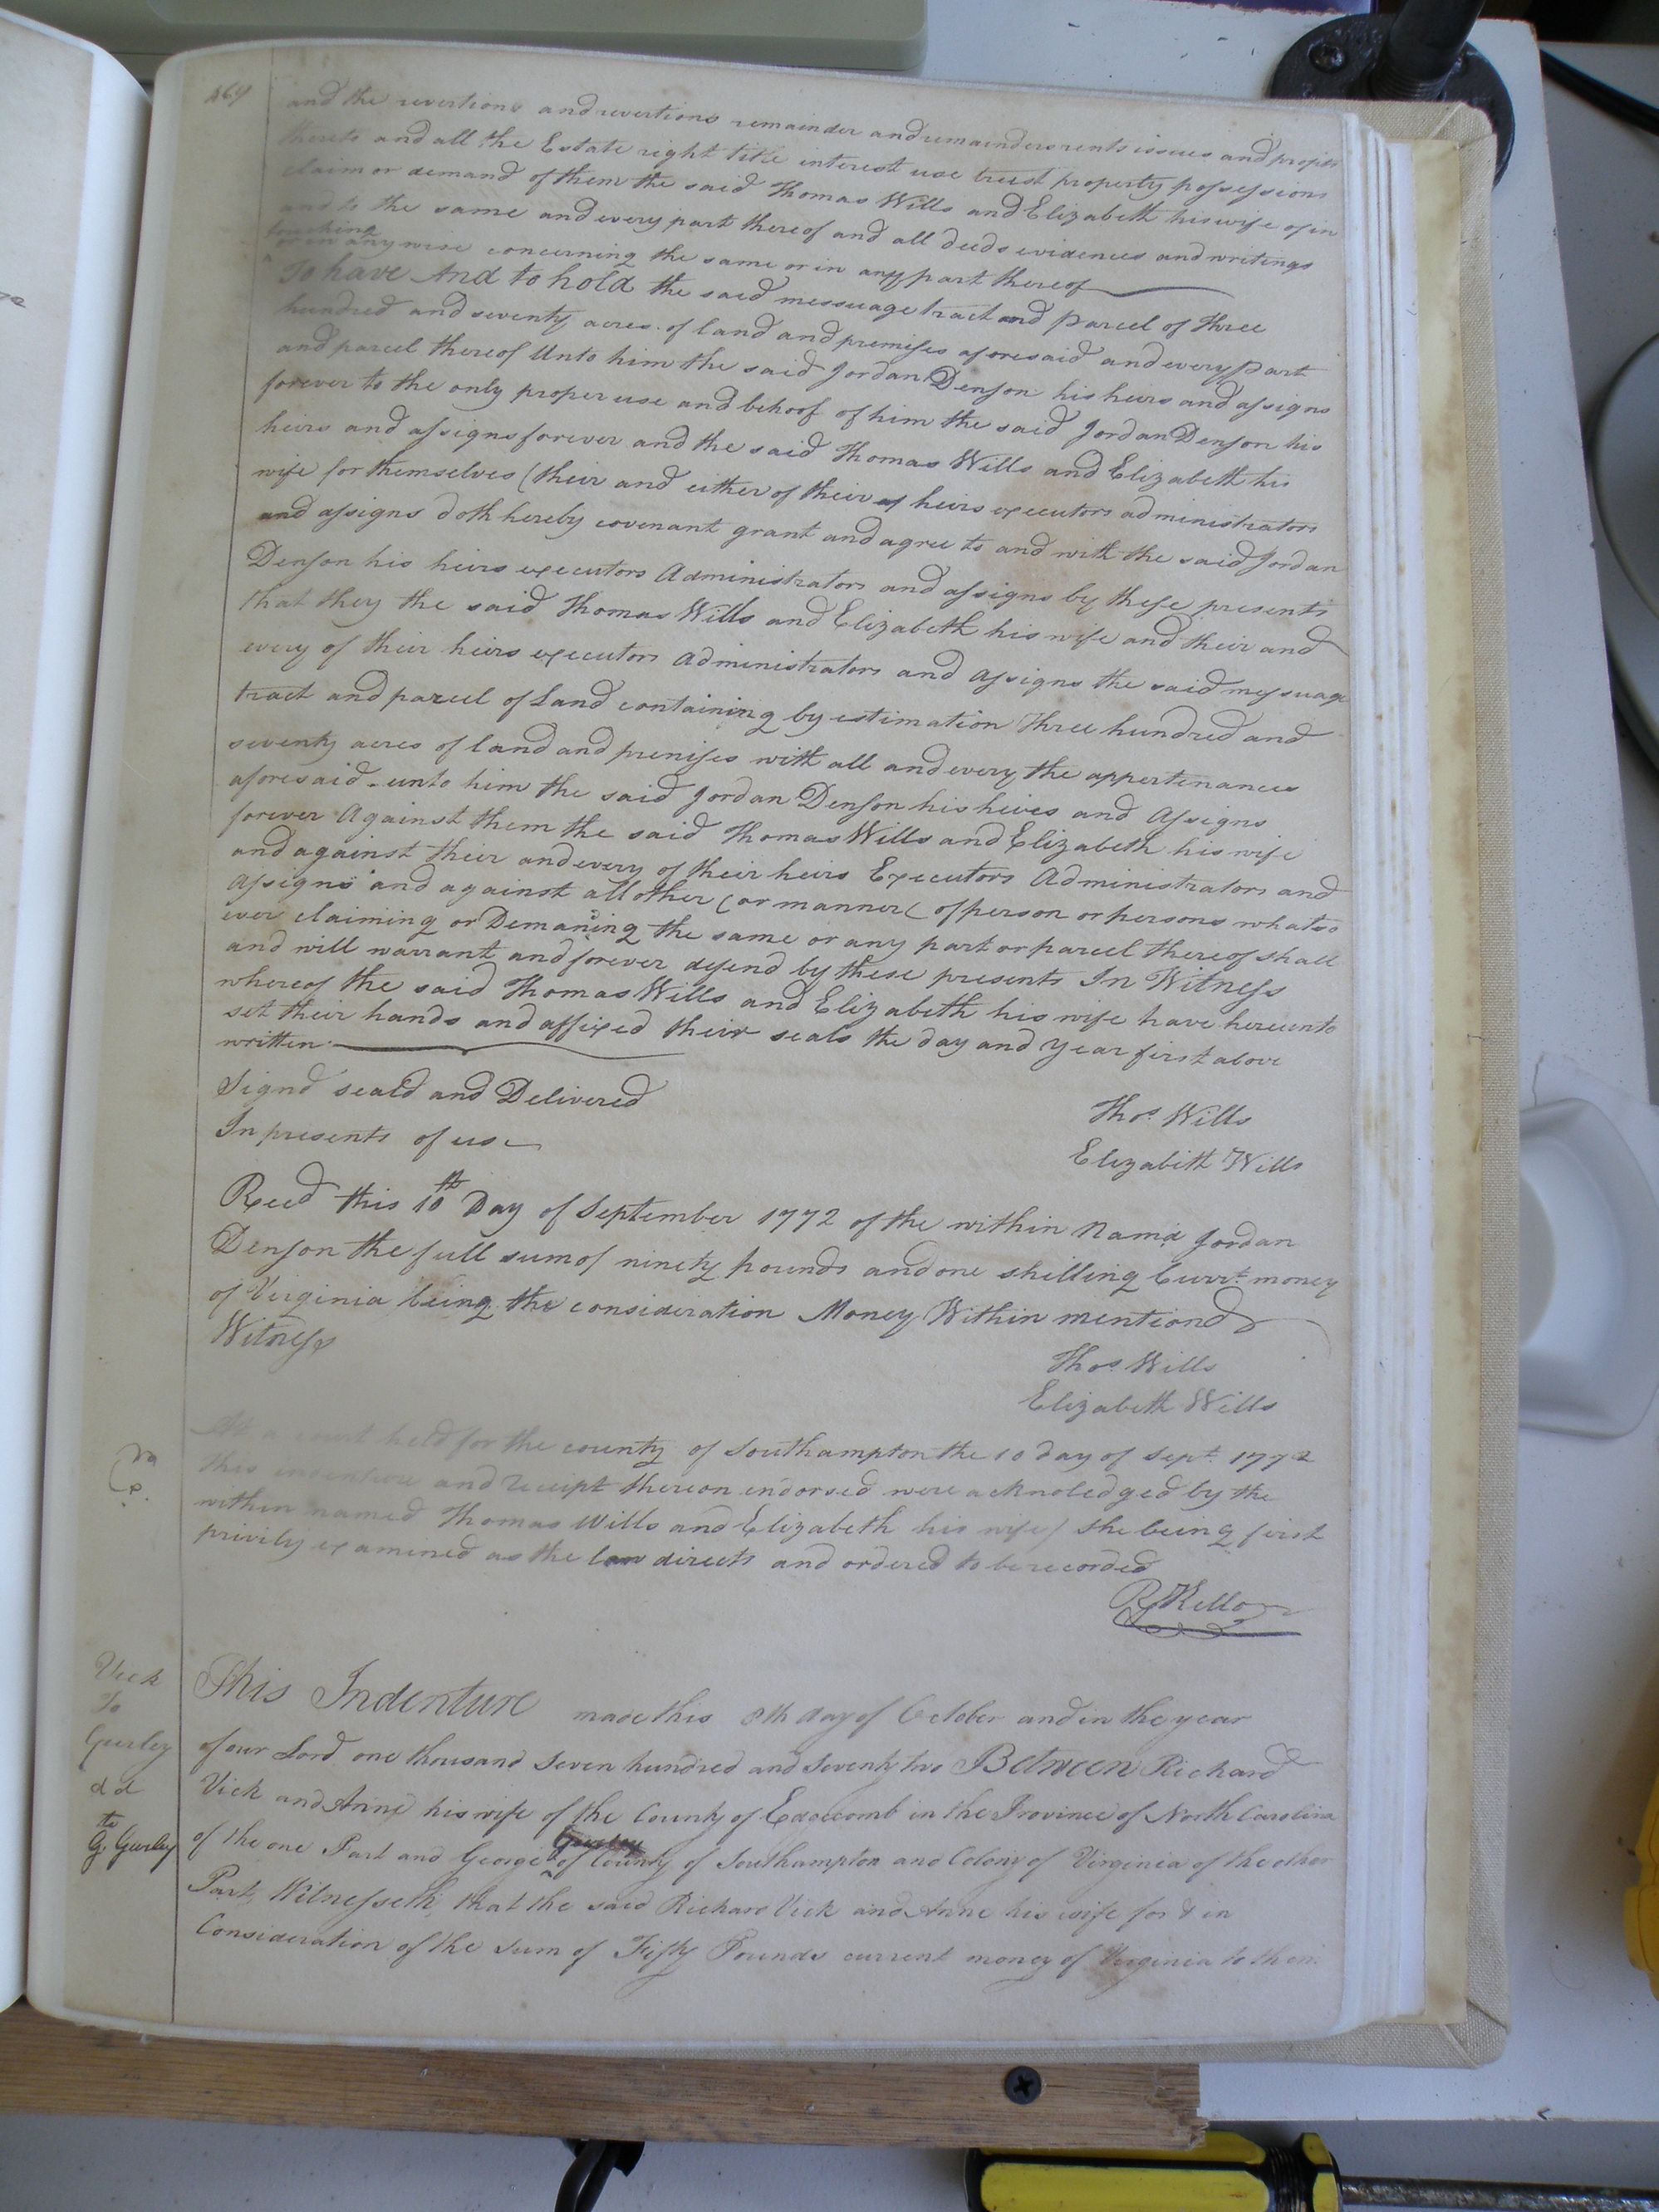 and the revertions and revertions remainder and remainders rents issues and profits
thereto and all the Estate right title interest use trust property possessions
claim or demand of them the said Thomas Wills and Elizabeth his wife of in
and to the same and every part thereof and all deeds evidences and writings
touching
or in any wise concerning the same or in any part thereof
To have And to hold the said messuage tract and parcel of three
hundred and seventy acres of land and premises aforesaid and every part
and parcel thereof Unto him the said Jordan Denson his heirs and assigns
forever to the only proper use and behoof of him the said Jordan Denson his
heirs and assigns forever and the said Thomas Wills and Elizabeth his
wife for themselves (their and either of their of heirs executors administrators
and assigns doth hereby covenant grant and agree to and with the said Jordan
Denson his heirs executors Administrators and assigns by these presents
that they the said Thomas Wills and Elizabeth his wife and their and
every of their heirs executors Administrators and Assigns the said messuage
tract and parcel of Land containing by estimation Three hundred and
seventy acres of land and premises with all and every the appertenances
aforesaid unto him the said Jordan Denson his heires and Assigns
forever Against them the said Thomas Wills and Elizabeth his wife
and against their and every of their heirs Executors Administrators and
Assigns and against all other (or manner( of person or persons whatso
ever claiming or Demaning the same or any part or parcel thereof shall
and will warrant and forever defend by these presents In Witness
whereof the said Thomas Wills and Elizabeth his wife have hereunto
set their hands and affixed their seals the day and year first above
written
Signd seald and Delivered
Thos. Wills
In presents of us
Elizabeth Wills
Recd this 10th Day of September 1772 of the within Namd Jordan
Denson the full sum of ninety pounds and one shilling Currt. money
of Virginia being the consideration Money Within mentiond
Witness
Thos Wills
Elizabeth Wills
At a court held for the county of Southampton the 10 day of Sept. 1772
this indenture and receipt thereon endorsed were acknoledged by the
within named Thomas Wills and Elizabeth his wife/ she being first
privily examined as the law directs and ordered to be recorded
R Kello
Vick
To
Gurley
dd
to
G. Gurley
This Indenture made this 8th day of October and in the year
of our Lord one thousand Seven hundred and Seventy two Between Richard
Vick and Anne his wife of the County of Edgecomb in the Province of North Carolina
Gurley
of the one Part and George of County of Southampton and Colony of Virginia of the other
Part, Witnesseth, that the said Richard Vick and Anne his wife for & in
Consideration of the Sum of Fifty Pounds current money of Virginia to them